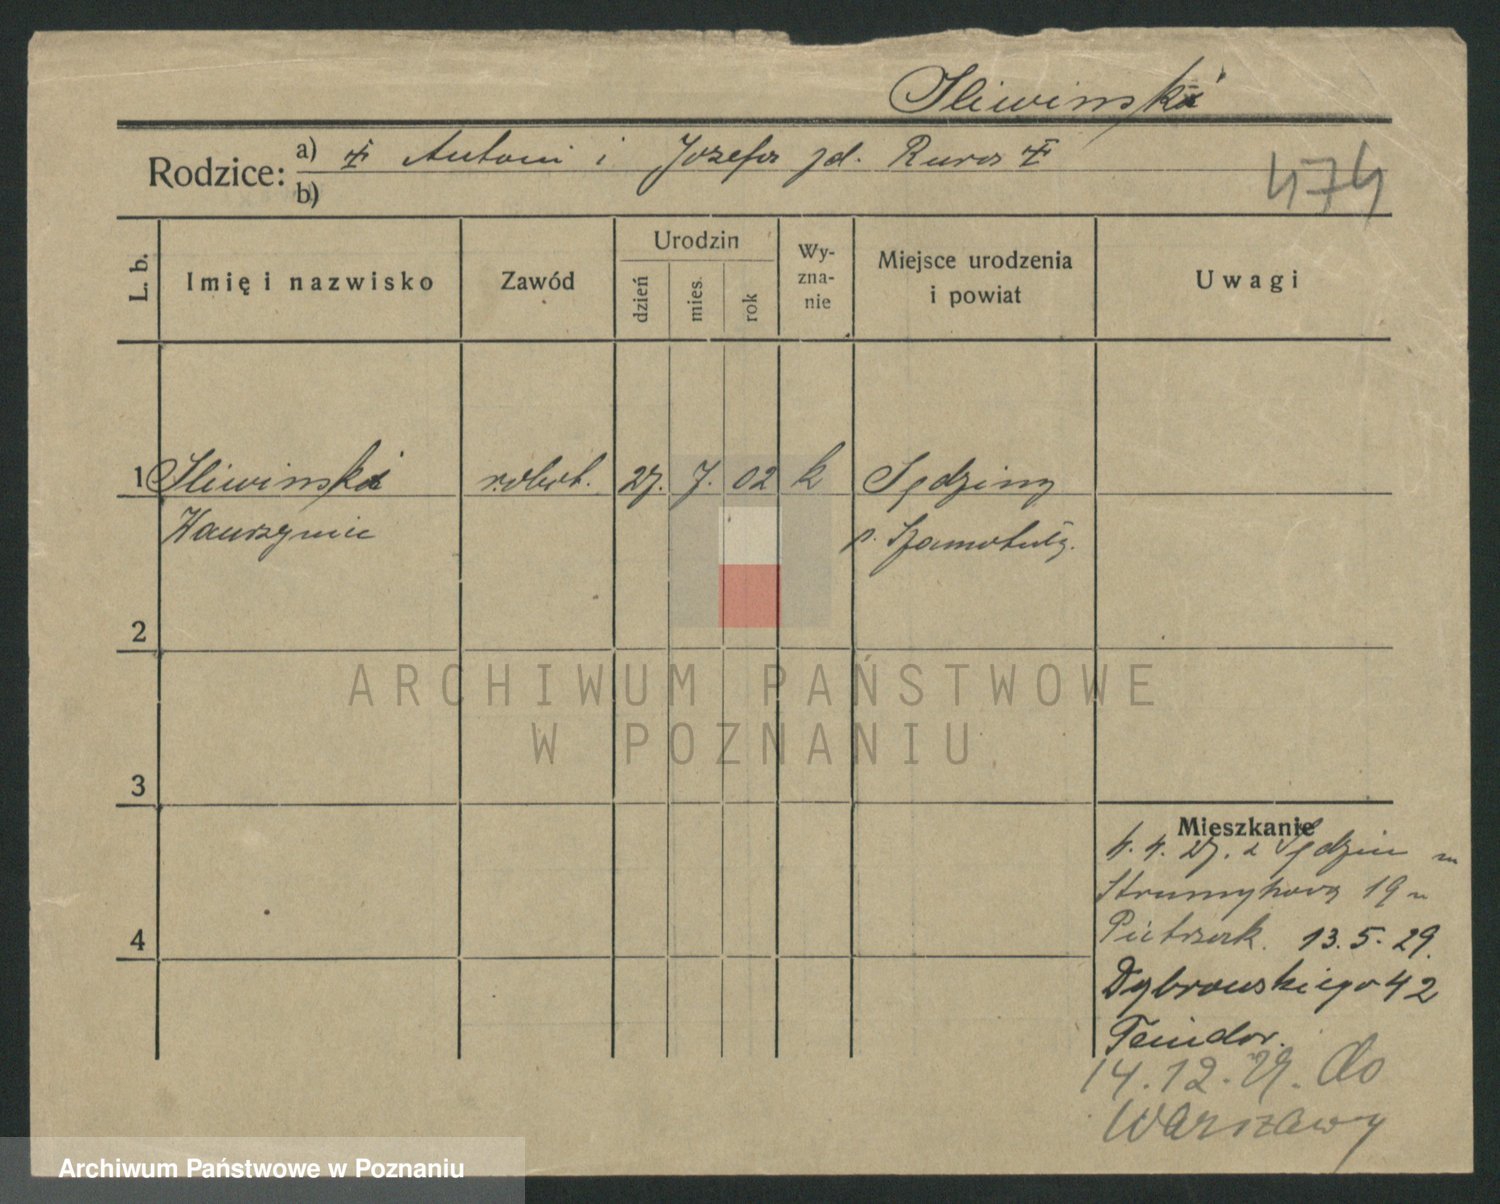 Śliwiński
Rodzice: a) Antoni i Józefa zd. Rura
b)
474
L. b.
Imię i nazwisko
Zawód
Urodzin
dzień
mies.
rok
Wy-
zna-
nie
Miejsce urodzenia
i powiat
Uwagi
1 Śliwiński robot. 27. 7. 02 k Sędziny
Wawrzyniec p. Szamotuły.
2
ARCHIWUM PAŃSTWOWE
W POZNANIU
3
Mieszkanie
4. 4. 27. z Sędzin
Strumykowa 19
4
Pietrzak. 13. 5. 29.
Dąbrowskiego 42
14. 12. 29. do
Warszawy
Archiwum Państwowe w Poznaniu